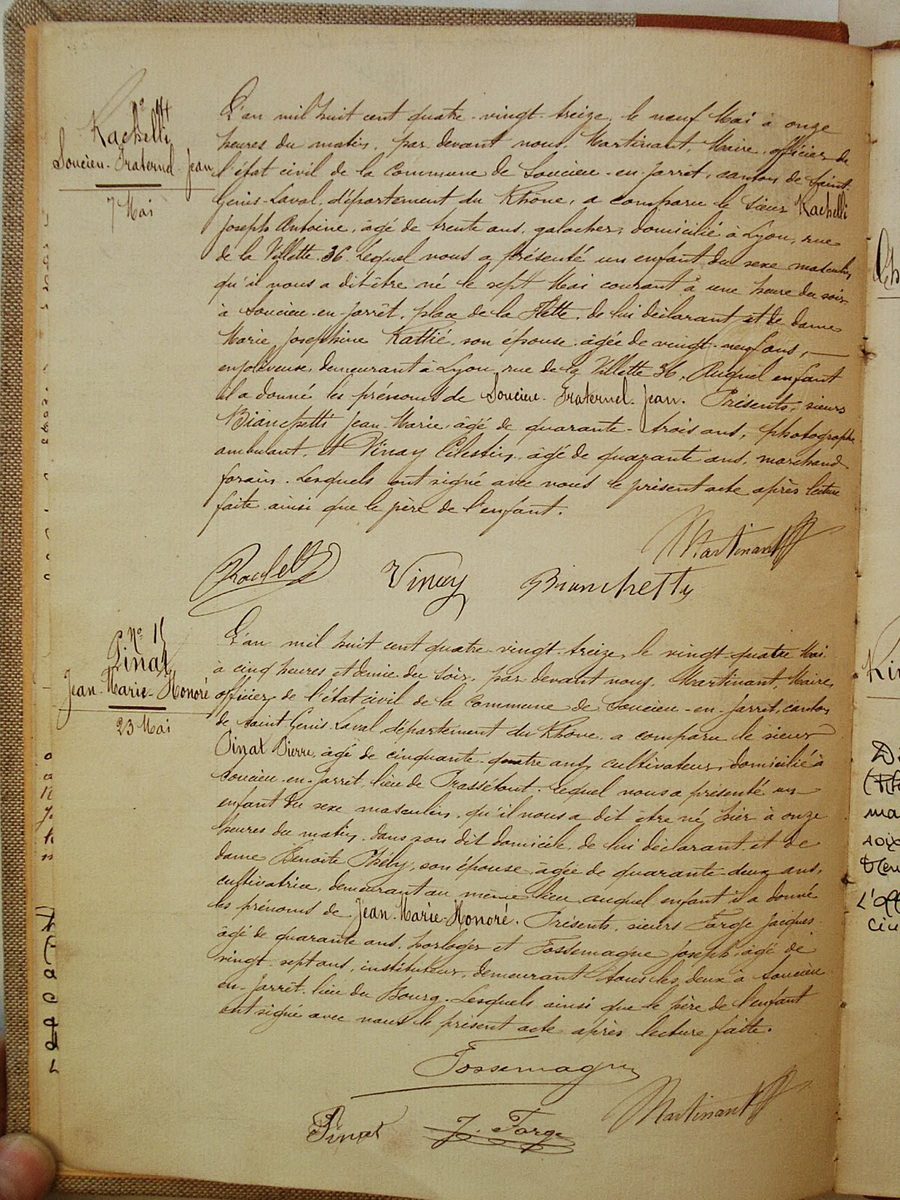 N° 14
Rachelli
Soucieu-Fraternel-Jean
7 Mai
L'an mil huit cent quatre-vingt-treize, le neuf Mai à onze
heures du matin, par devant nous, Martinant, Maire, officier de
l'état civil de la Commune de Soucieu-en-Jarret, canton de Saint
Genis-Laval, département du Rhône, a comparu le sieur Rachelli
Joseph Antoine, âgé de trente ans, galocher, domicilié à Lyon, rue
de la Villette 36. Lequel nous a présenté un enfant du sexe masculin
qu'il nous a dit être né le sept Mai courant à une heure du soir
à Soucieu-en-Jarret, place de la de lui déclarant et de dame
Marie Josephine Kattié, son épouse âgée de vingt-neuf ans,
demeurant à Lyon, rue de la Villette 36. Auquel enfant
il a donné les prénoms de Soucieu-Fraternel-Jean. Présents, sieurs
Bianchetti Jean-Marie, âgé de quarante-trois ans, photographe
ambulant, et Vinay Célestin, âgé de quarante ans, marchand
forain. Lesquels ont signé avec nous le présent acte après lecture
faite ainsi que le père de l'enfant.
Martinant
Rachelli Vinay Bianchetti
N° 15
Pinat
Jean-Marie-Honoré
23 Mai
L'an mil huit cent quatre vingt-treize, le vingt-quatre Mai
à cinq heures et demie du soir, par devant nous, Martinant, Maire,
officier de l'état civil de la Commune de Soucieu-en-Jarret, canton
de Saint Genis-Laval, département du Rhône, a comparu le sieur
Pinat Pierre, âgé de cinquante-quatre ans, cultivateur, domicilié à
Soucieu-en-Jarret, lieu de Lequel nous a présenté un
enfant du sexe masculin, qu'il nous a dit être né hier à onze
heures du matin, dans son dit domicile, de lui déclarant et de
dame Benoite son épouse âgée de quarante deux ans,
cultivatrice, demeurant au même lieu, auquel enfant il a donné
les prénoms de Jean-Marie-Honoré. Présents, sieurs Farge Jacques
âgé de quarante ans, horloger et Fossemagne Joseph, âgé de
vingt-sept ans, instituteur, demeurant tous les deux à Soucieu
en-Jarret, lieu du Bourg. Lesquels ainsi que le père de l'enfant
ont signé avec nous le présent acte après lecture faite.
Fossemagne
Martinant
Pinat J. Farge